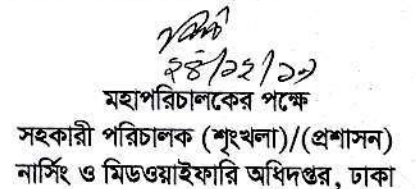 ২৪/১২/১৯
মহাপরিচালকের পক্ষে
সহকারী পরিচালক (শৃংখলা)/(প্রশাসন)
নার্সিং ও মিডওয়াইফারি অধিদপ্তর, ঢাকা